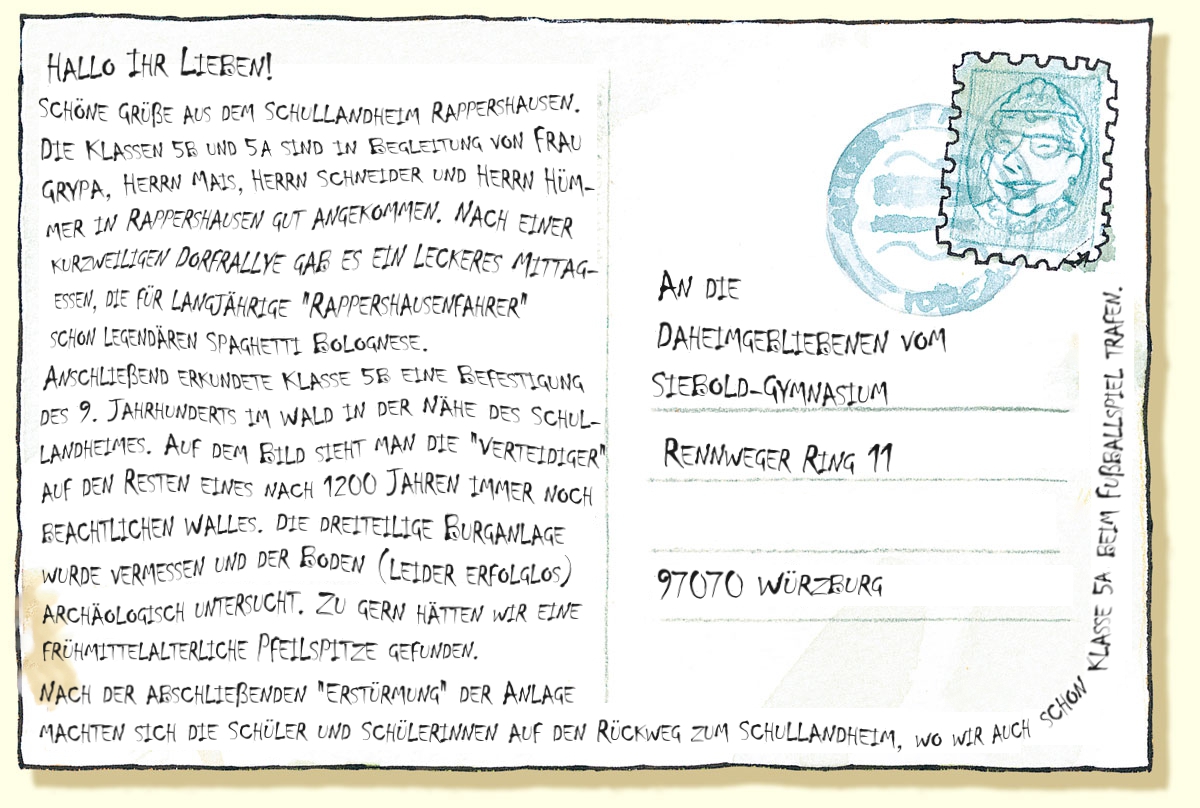 Hallo Ihr Lieben!
Schöne Grüße aus dem Schullandheim Rappershausen.
Die Klassen 5b und 5a sind in Begleitung von Frau
Grypa, Herrn Mais, Herrn Schneider und Herrn Hüm-
mer in Rappershausen gut angekommen. Nach einer
kurzweiligen Dorfrallye gab es ein leckeres Mittag-
essen, die für langjährige "Rappershausenfahrer"
schon legendären Spaghetti Bolognese.
Anschließend erkundete Klasse 5b eine Befestigung
des 9. Jahrhunderts im Wald in der Nähe des Schul-
landheimes. Auf dem Bild sieht man die "Verteidiger"
auf den Resten eines nach 1200 Jahren immer noch
beachtlichen Walles. Die dreiteilige Burganlage
wurde vermessen und der Boden (leider erfolglos)
archäologisch untersucht. Zu gern hätten wir eine
frühmittelalterliche Pfeilspitze gefunden.
Nach der abschließenden "Erstürmung" der Anlage
machten sich die Schüler und Schülerinnen auf den Rückweg zum Schullandheim, wo wir auch schon Klasse 5a beim Fußballspiel trafen.
An die
Daheimgebliebenen vom
Siebold-Gymnasium
Rennweger Ring 11
97070 Würzburg